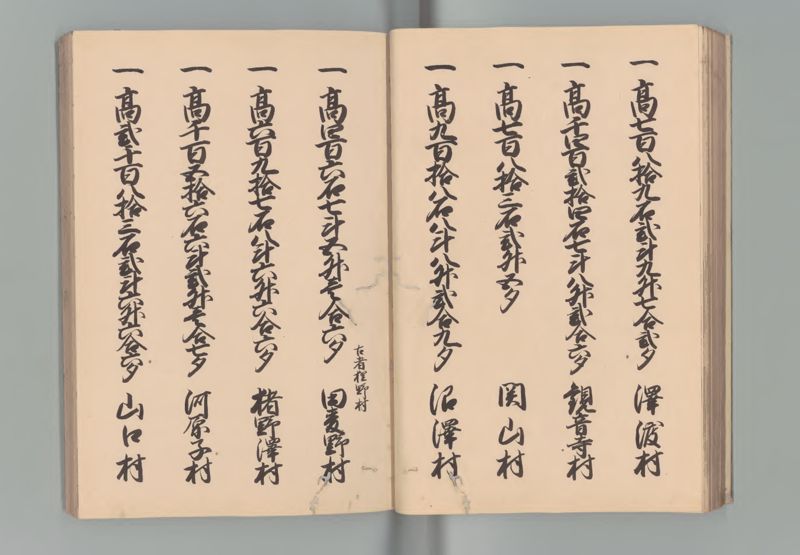 一 高七百八拾九石弐斗九升七合弐夕 澤渡村
一 高千四百弐拾四石七斗八升弐合六夕 観音寺村
一 高七百八拾三石弐升五夕 関山村
一 高九百拾八石八斗八升弐合九夕 沼澤村
一 高四百六石七斗五升壱合六夕 田麦野村
古者桂野村
一 高六百九拾七石八斗六升六合六夕 猪野澤村
一 高千百五拾六石六斗弐升壱合七夕 河原子村
一 高弐千百八拾三石弐斗六升六合六夕 山口村